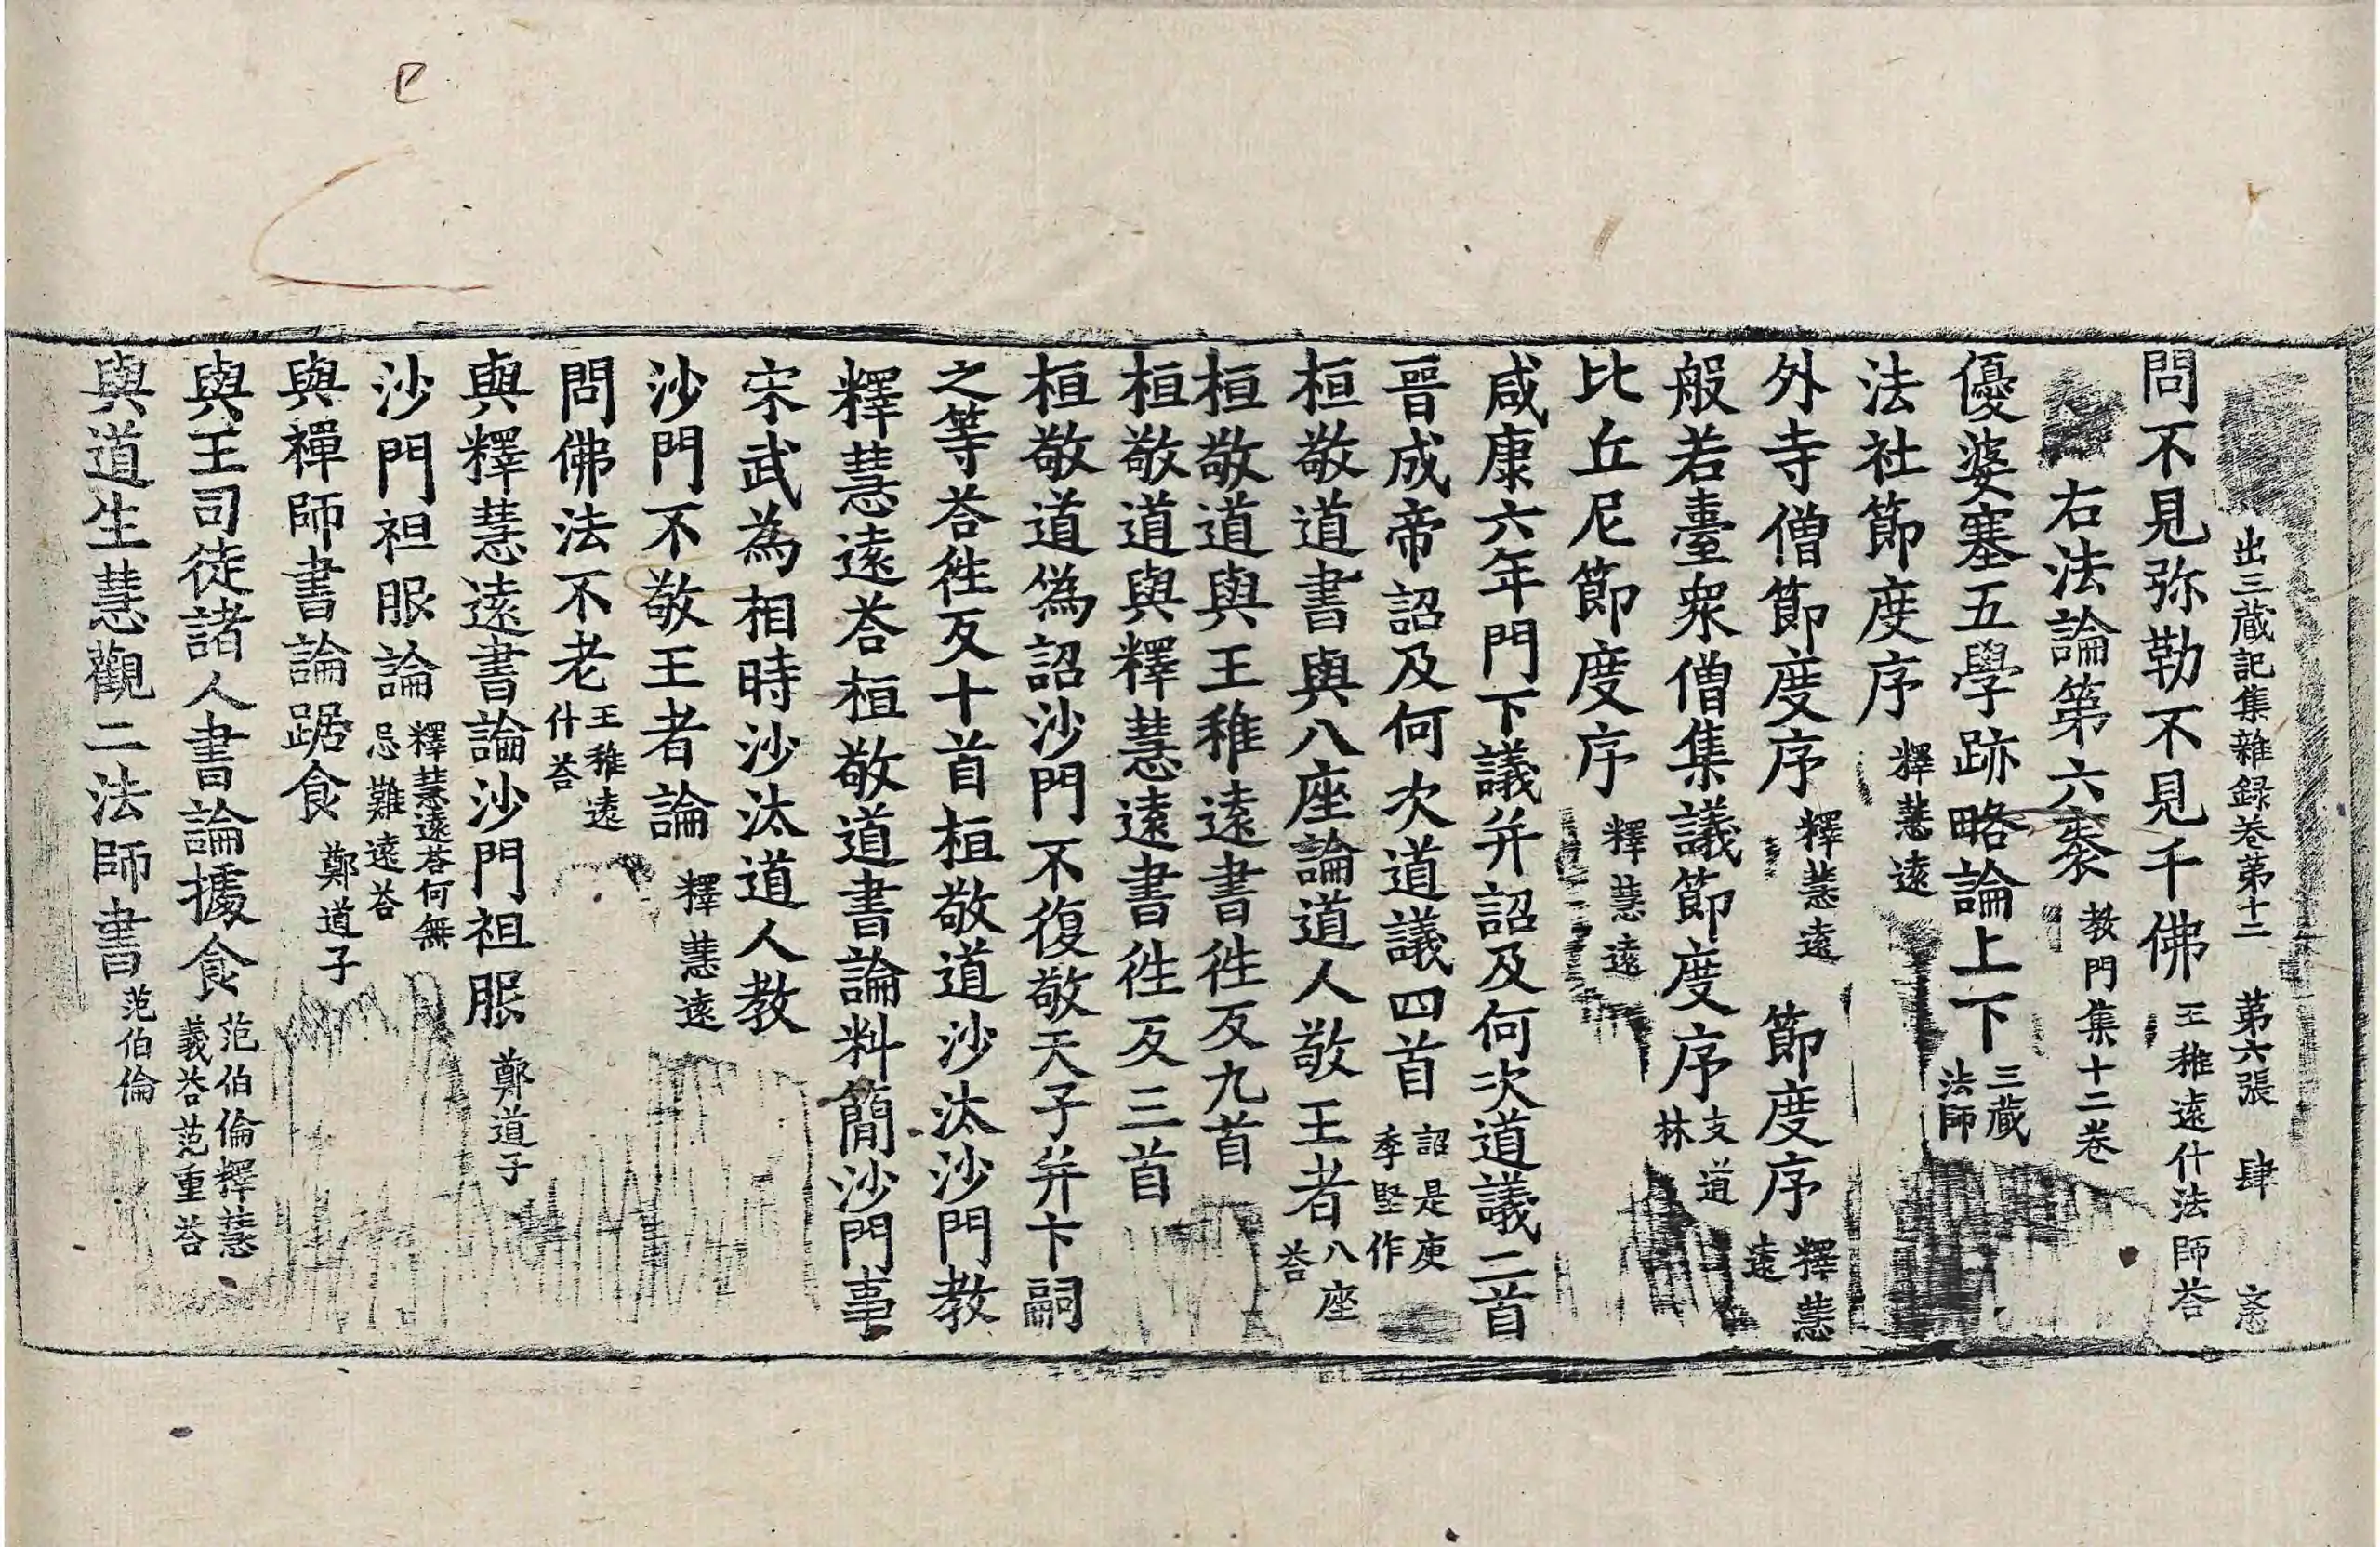 出三藏記集雜録卷苐十二　苐六張　肆
問不見弥勒不見千佛　王稚遠什法師荅
右法論第六袠　教門集十二卷
優婆塞五學跡略論上下　三藏法師
法社節度序　釋慧遠
外寺僧節度序　釋慧遠　節度序　釋慧遠
般若臺衆僧集議節度序　支道林
比丘尼節度序　釋慧遠
咸康六年門下議并詔及何次道議二首
晉成帝詔及何次道議四首　詔是庾季堅作
桓敬道書與八座論道人敬王者　八座荅
桓敬道與王稚遠書徃反九首
桓敬道與釋慧遠書徃反三首
桓敬道偽詔沙門不復敬天子并卞嗣
之等荅徃反十首桓敬道沙汰沙門教
釋慧遠荅桓敬道書論料簡沙門事
宋武為相時沙汰道人教
沙門不敬王者論　釋慧遠
問佛法不老　王稚遠什荅
與釋慧遠書論沙門袒服　鄭道子
沙門袒服論　釋慧遠荅何無忌難遠荅
與禪師書論踞食　鄭道子
與王司徒諸人書論據食　范伯倫釋慧義荅范重荅
與道生慧觀二法師書　范伯倫